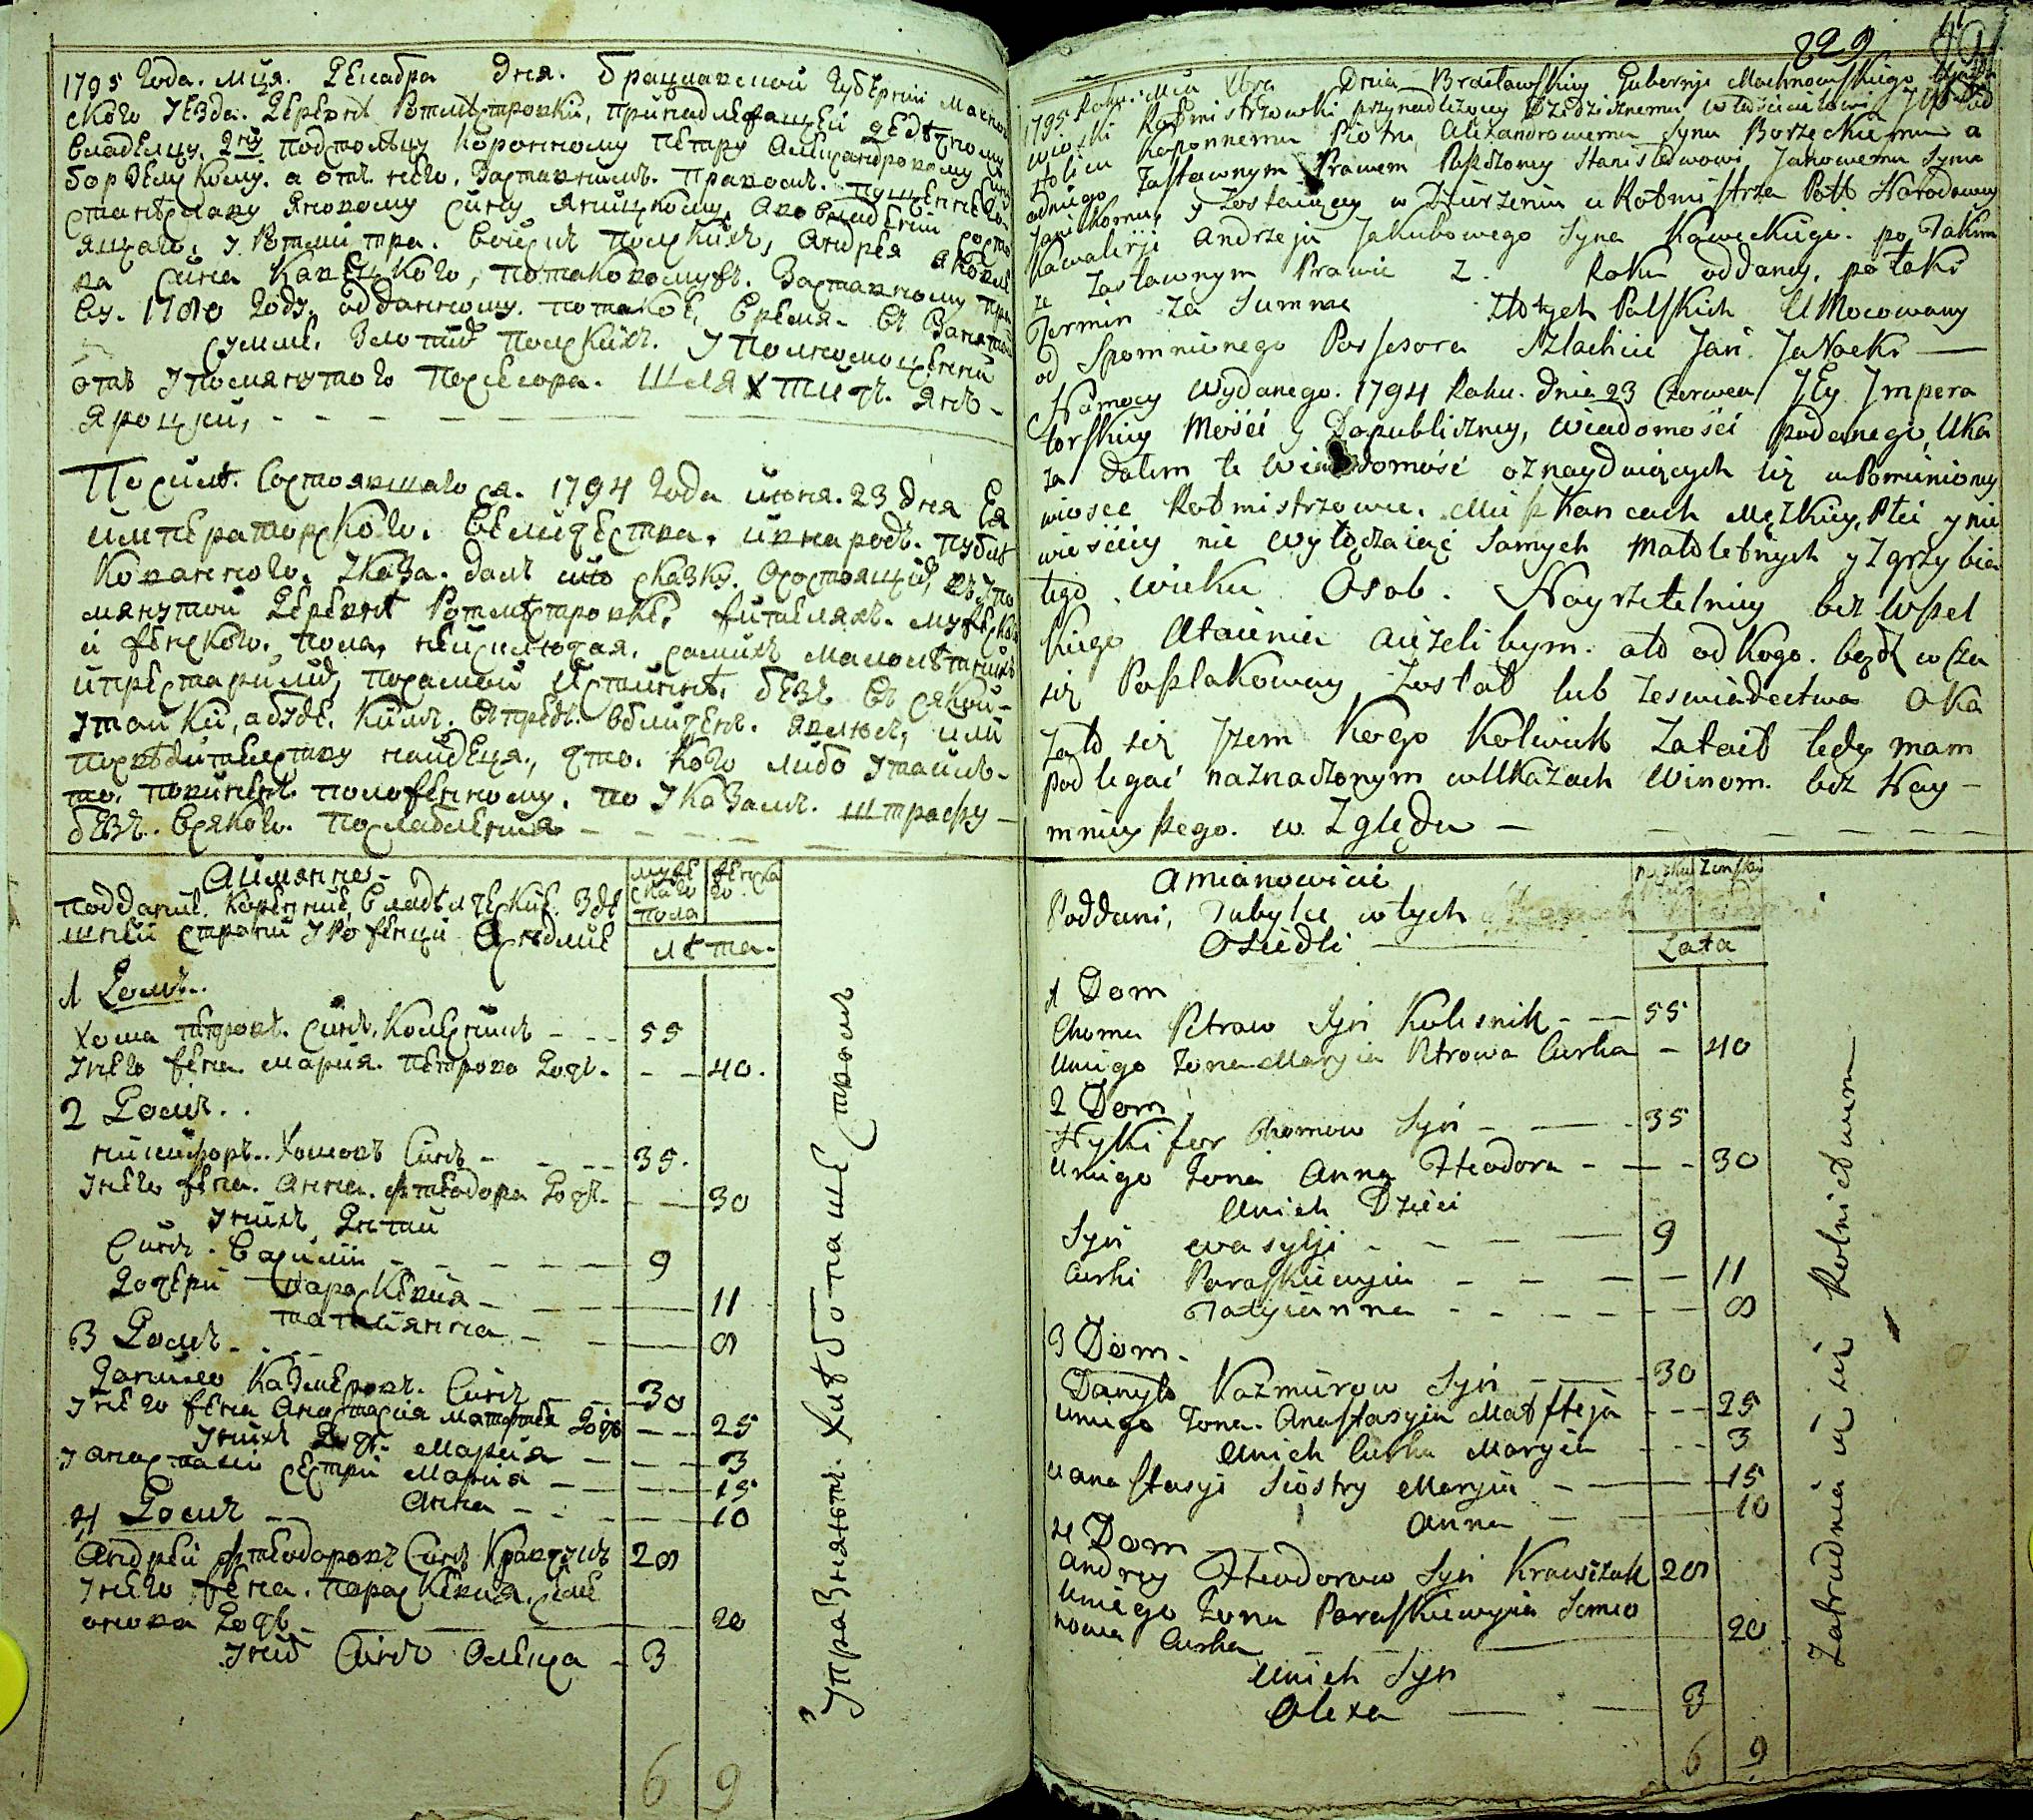 1795 года. мця. Декабра дня. брацлавской губернии Махнов
ского уезда. Деревне Ротмистровки, принадлежащей дедичному
владелцу подстолыму коронному Петру Александровому
боржецкому. а отъ него. Заставнимъ. правомъ. пущенной
станиславу Яновому сину яницкому,
ящаго, у Ротмистра. войскъ полскихъ, Андрея
ва сина Кавецкого, потаковомужъ. Заставному
въ. 1780 году, отданному. потакое, время. въ
сумме, Злотихъ полскихъ. Уполномоченний
отъ упомянутого посесора. Шляхтичъ. Янъ
Яроцкий,
По силе. Состоявшагося. 1794 года июня. 23 дня Ея
императорского. величества. и внародъ. публи
кованного. Указа. далъ сию сказку. о состоящихъ, въ упо
мянутой деревне Ротмистровке, жителяхъ. мужеска
и женского. пола, неисключая. самихъ малолетнихъ
и престарилихъ, посамой истинне, безъ всякой
утайки, а буде. кимъ. впредь. обличенъ. явлюсь, или
посвидителству найдеця, что. кого либо утаилъ
то, повиненъ положенному. по Указамъ. штрафу
безъ. всякого. послабления
Аимянно
поддание. кореннии, владелческие. Зде
шней страни урожейци Оседлие
муже
ского
пола
женска
го.
лета.
1 Домъ
Хома петровъ. Синъ. Колесникъ 55
Унего жена мария. петрова Дочь. 40.
2 Домъ
никифоръ. Хомовъ Синъ 35.
Унего жена. анна. фтеодора Дочь. 30
Унихъ Дети
Синъ. Василий 9
Дочери Параскевия 11
татиянна 8
3 Домъ
Данило Казмеровъ. Синъ 30
Унего жена Анастасия матфтея Дочь 25
Унихъ Дочь. Мария 3
У анастасии сестри Мария 15
Анна 10
4 Домъ
Андрей фтеодоровъ Синъ Кравчукъ 28
Унего жена. параскевия. семе
онова Дочь 20
Унихъ Синъ Олекса 3
6 9
Упражняются. Хлебопашеством
229
1795 Roku. Mca Xbra Dnia Bractawskiey Gubernji Machnowskiego
Wioski Rotmistrzowki przynadlezoney Dziedzicznemu wlascicielowi
stolicu Koronnemu Piotru Alexandrowemu Synu Borzeckiemu a
odniego Zastawnym Prawem Paszczoney Stanislawowi Janowemu Synu
Janickomu, y Zostaiącey w Dzierzeniu u Rotmistrza Polt Narodowey
Kawalerji Andrzeja Jakubowego Syna Kaweckiego. po Takim
ze Zastawnym Prawie 2. Roku oddaney, po taki
Termin za Summe Złotych Polskich UMocowany
od Spomnionego Possesora Szlachcic Jan JaRocki
Namocy Wydanego. 1794 Roku. Dnia 23 Czerwca JEy Jmpera
torskiey Mości y Dopubliczney, wiadomości podanego, Uka
zu Dałem tę Wiadomość oznayduiących się wPomienioney
wiosce Rotmistrzowce. Mieszkancach Męzkiey, Płci y nie
wieściey nie wyłączaiąc Samych Małoletnych y Zgrzybia
łego wieku Osob. Nayrzetelniey bez wszel
kiego Utaienia aieżelibym. ato od kogo. bądz w cza
się Poszlakowany Został lub Zeswiadectwa oka
zało się Jzem Kogo Kolwiek Zataił tedy mam
podlegać naznaczonym wUkazach Winom. bez Nay-
mnieyszego. w Zględu
Amianowicie
Poddani, Tubylce wtych
Osiedli
męzkiey
Zenskiey
Lata
1 Dom
Choma Petrow Syn Kolesnik 55
Uniego Zona Maryia Petrowa Curka 40
2 Dom
Nykifor Chomow Syn 35
Uniego Zona Anna Fteodora 30
Unich Dzieci
Syn Wasylji 9
Curki Paraskiewyia 11
Tatyianna 8
3 Dom
Danyło Kazmirow Syn 30
Uniego Zona. Anastasyia Matfteja 25
Unich Curka Maryia 3
U anastasyi Siostry Maryia 15
Anna 10
4 Dom
Andrey Fteodorow Syn Krawczuk 28
Uniego Zona Paraskiewyia Semeo
nowa Curka 20
Unich Syn
Olexa 3
6 9
Zatrudniaią się Rolnictwem